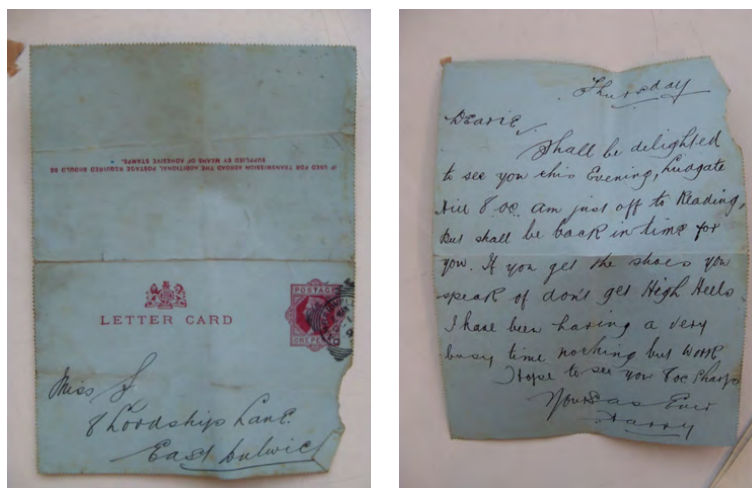 IF USED FOR TRANSMISSION ABROAD THE ADDITIONAL POSTAGE REQUIRED SHOULD BE
SUPPLIED BY MEANS OF ADHESIVE STAMPS.
LETTER CARD
POSTAGE
ONE PENNY
Miss S
8 Lordship Lane.
East Dulwich
Thursday
Dearie,
Shall be delighted
to see you this Evening, Ludgate
Hill 8.oc. am just off to Reading,
But shall be back in time for
you. If you get the shoes you
speak of don't get High Heels
I have been having a very
busy time nothing but work
Hope to see you 8oc Sharp
Yours as Ever
Harry